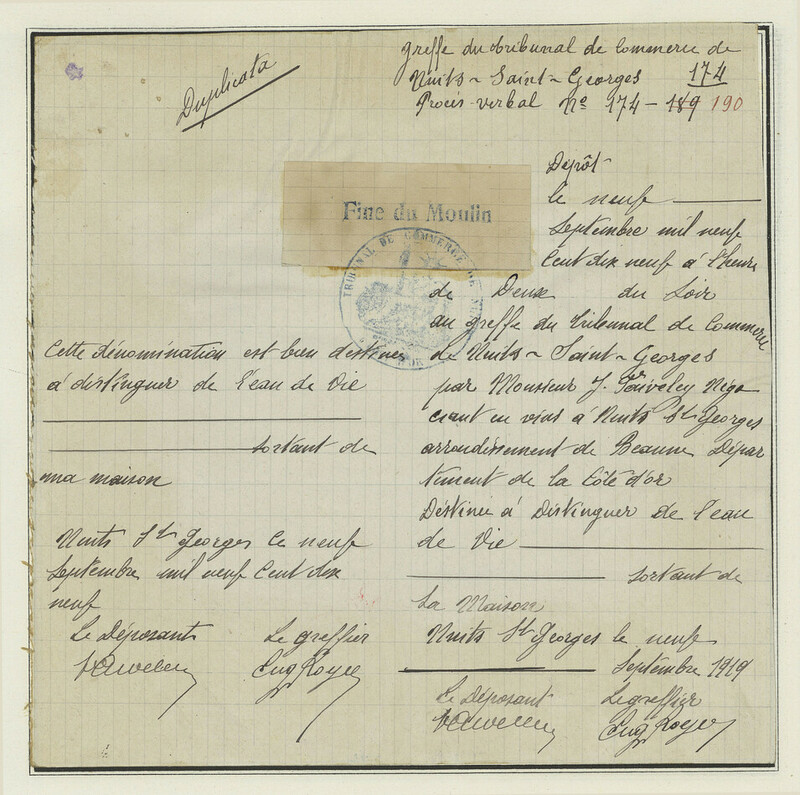 Duplicata
greffe du tribunal de Commerce de
Nuits-Saint-Georges 174
Procès-verbal No 174 - 189 190
Fine du Moulin
TRIBUNAL DE COMMERCE DE
Cette dénomination est bien destinée
à distinguer de l'eau de Vie
sortant de
ma maison
Nuits St Georges le neuf
Septembre mil neuf Cent dix
neuf
Le Déposant Le greffier
Eug Royer
Dépôt
le neuf
Septembre mil neuf
Cent dix neuf à l'heure
de Deux du Soir
au greffe du Tribunal de Commerce
de Nuits-Saint-Georges
par Monsieur J. Négo
ciant en vins à Nuits St Georges
arrondissement de Beaune Dépar
tement de la Côte d'or
Destinée à Distinguer de l'eau
de Vie
sortant de
La Maison
Nuits St Georges le neuf
Septembre 1919
Le Déposant Le greffier
Eug Royer